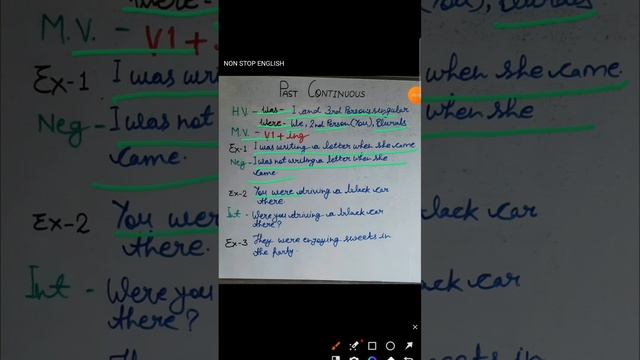 NON STOP ENGLISH
PAST CONTINUOUS
H.V - Was - I and 3rd Person singular
Were - We, 2nd Person (You), Plurals
M.V. - V1 + ing
Ex-1 I was writing a letter when she came
Neg - I was not writing a letter when she
came
Ex-2 You were driving a black car
there.
Int - Were you driving a black car
there?
Ex-3 They were enjoying sweets in
the party.